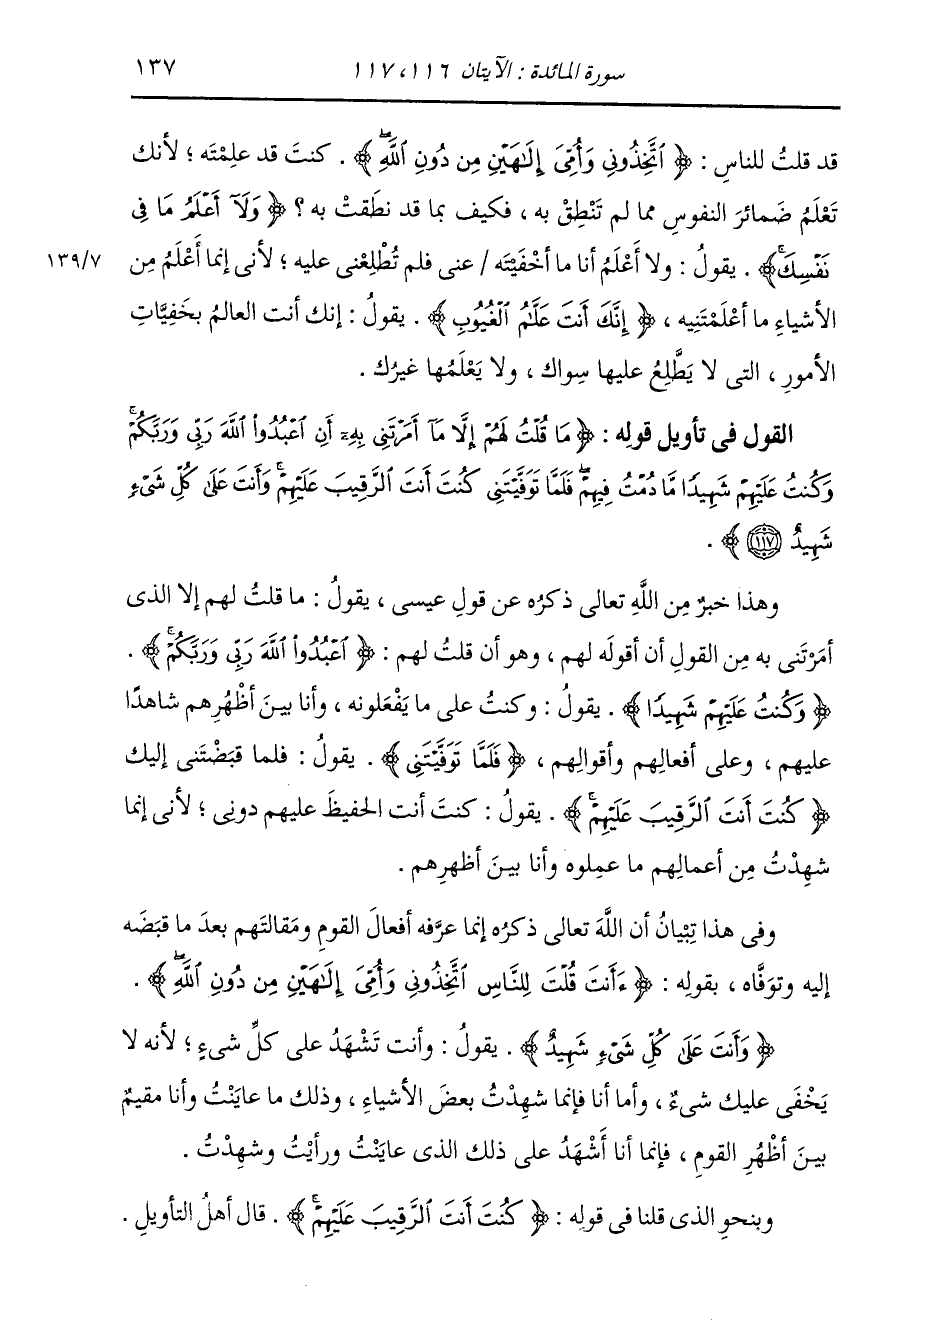 سورة المائدة : الآيتان ١١٦ ، ١١٧ ١٣٧
قد قلتُ للناسِ : ﴿ ٱتَّخِذُونِى وَأُمِّىَ إِلَـٰهَيْنِ مِن دُونِ ٱللَّهِۖ ﴾ . كنتَ قد علِمْتَه ؛ لأنك
تَعْلَمُ ضَمائرَ النفوسِ مما لم تَنْطِقْ به ، فكيف بما قد نطَقتْ به ؟ ﴿ وَلَآ أَعْلَمُ مَا فِى
نَفْسِكَۚ ﴾ . يقولُ : ولا أَعْلَمُ أنا ما أخْفَيْتَه / عنى فلم تُطْلِعْنى عليه ؛ لأنى إنما أَعْلَمُ مِن ١٣٩/٧
الأشياءِ ما أعْلَمْتَنِيه ، ﴿ إِنَّكَ أَنتَ عَلَّـٰمُ ٱلْغُيُوبِ ﴾ . يقولُ : إنك أنت العالمُ بخَفِيَّاتِ
الأمورِ ، التى لا يَطَّلِعُ عليها سِواك ، ولا يَعْلَمُها غيرُك .
القول فى تأويل قولِه : ﴿ مَا قُلْتُ لَهُمْ إِلَّا مَآ أَمَرْتَنِى بِهِۦٓ أَنِ ٱعْبُدُوا۟ ٱللَّهَ رَبِّى وَرَبَّكُمْۚ
وَكُنتُ عَلَيْهِمْ شَهِيدًا مَّا دُمْتُ فِيهِمْۖ فَلَمَّا تَوَفَّيْتَنِى كُنتَ أَنتَ ٱلرَّقِيبَ عَلَيْهِمْۚ وَأَنتَ عَلَىٰ كُلِّ شَىْءٍ
شَهِيدٌ ١١٧ ﴾ .
وهذا خبرٌ مِن اللَّهِ تعالى ذكرُه عن قولِ عيسى ، يقولُ : ما قلتُ لهم إلا الذى
أمَرْتَنى به مِن القولِ أن أقولَه لهم ، وهو أن قلتُ لهم : ﴿ ٱعْبُدُوا۟ ٱللَّهَ رَبِّى وَرَبَّكُمْۚ ﴾ .
﴿ وَكُنتُ عَلَيْهِمْ شَهِيدًا ﴾ . يقولُ : وكنتُ على ما يَفْعَلونه ، وأنا بينَ أظْهُرِهم شاهدًا
عليهم ، وعلى أفعالِهم وأقوالِهم ، ﴿ فَلَمَّا تَوَفَّيْتَنِى ﴾ . يقولُ : فلما قبَضْتَنى إليك
﴿ كُنتَ أَنتَ ٱلرَّقِيبَ عَلَيْهِمْۚ ﴾ . يقولُ : كنتَ أنت الحفيظَ عليهم دونِى ؛ لأنى إنما
شهِدْتُ مِن أعمالِهم ما عمِلوه وأنا بينَ أظهرِهم .
وفى هذا تِبْيانُ أن اللَّهَ تعالى ذكرُه إنما عرَّفه أفعالَ القومِ ومَقالتَهم بعدَ ما قبَضَه
إليه وتوَفَّاه ، بقولِه : ﴿ ءَأَنتَ قُلْتَ لِلنَّاسِ ٱتَّخِذُونِى وَأُمِّىَ إِلَـٰهَيْنِ مِن دُونِ ٱللَّهِۖ ﴾ .
﴿ وَأَنتَ عَلَىٰ كُلِّ شَىْءٍ شَهِيدٌ ﴾ . يقولُ : وأنت تَشْهَدُ على كلِّ شىءٍ ؛ لأنه لا
يَخْفَى عليك شىءٌ ، وأما أنا فإنما شهِدْتُ بعضَ الأشياءِ ، وذلك ما عايَنْتُ وأنا مقيمٌ
بينَ أظْهُرِ القومِ ، فإنما أنا أَشْهَدُ على ذلك الذى عايَنْتُ ورأيْتُ وشهِدْتُ .
وبنحوِ الذى قلنا فى قولِه : ﴿ كُنتَ أَنتَ ٱلرَّقِيبَ عَلَيْهِمْۚ ﴾ . قال أهلُ التأويلِ .